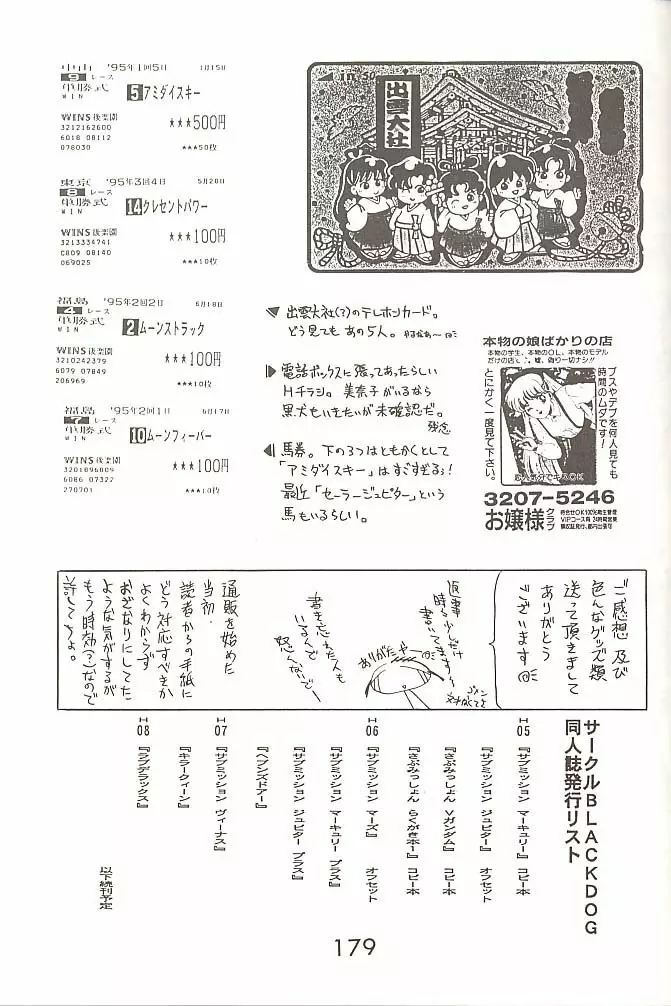 中山 '95年1回5日 1月15日
9 レース
単勝式 5 アミダイスキー
WIN
WINS後楽園 ★★★500円
3212162600
6018 08112
078030 ★★★50枚
東京 '95年3回4日 5月28日
8 レース
単勝式 14 クレセントパワー
WIN
WINS後楽園 ★★★100円
3213334741
C809 08140
069025 ★★★10枚
福島 '95年2回2日 6月18日
4 レース
単勝式 2 ムーンストラック
WIN
WINS後楽園 ★★★100円
3210242379
6079 07849
206969 ★★★10枚
福島 '95年2回1日 6月17日
7 レース
単勝式 10 ムーンフィーバー
WIN
WINS後楽園 ★★★100円
3201896809
6086 07322
270701 ★★★10枚
50
出雲大社
出雲大社(?)のテレホンカード。
どう見てもあの5人。
電話ボックスに張ってあったらしい
Hチラシ。美奈子がいるなら
黒犬もいきたいが未確認だ。
残念
馬券。下の3つはともかくとして
「アミダイスキー」はすごすぎる!
最近「セーラージュピター」という
馬もいるらしい。
本物の娘ばかりの店
本物の学生、本物のOL、本物のモデル
だけの店で、嘘、偽り一切ナシ!!
ブスやデブを何人見ても
時間のムダです!
とにかく一度見て下さい。
3207-5246
お嬢様クラブ
待合せOK100%衛生管理
VIPコース有 24時間営業
領収証発行、都内出張可
ご感想 及び
色んなグッズ類
送って頂きまして
ありがとう
ございます
返事
時々少しだけ
書いてますす
書き忘れた人も
いるくで
怒くないで〜
ありがたや
通販を始めた
当初、
読者からの手紙に
どう対応すべきか
よくわからず
おざなりにしてた
ような気がするが
もう時効(?)なので
許してちょ。
サークルBLACKDOG
同人誌発行リスト
H05 『サブミッション マーキュリー』 コピー本
『サブミッション ジュピター』 オフセット
『さぶみっしょん Vガンダム』 コピー本
『さぶみっしょん らくがきホー1』 コピー本
H06 『サブミッション マーズ』 オフセット
『サブミッション マーキュリー プラス』
『サブミッション ジュピター プラス』
『ヘブンズドアー』
H07 『サブミッション ヴィーナス』
『キラークィーン』
H08 『ラブデラックス』
以下続刊予定
179